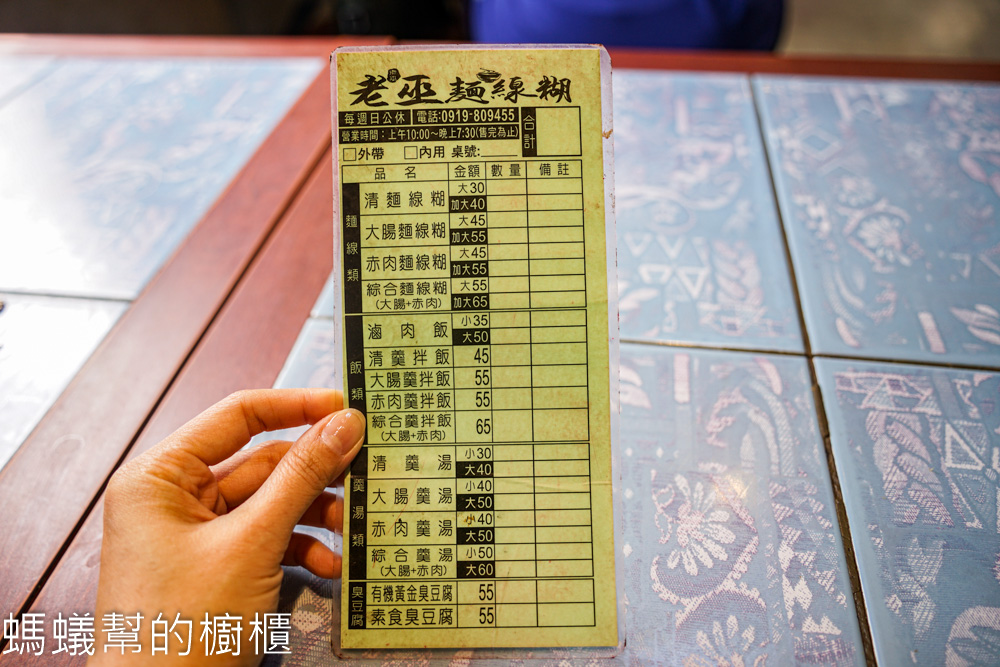 老巫麵線糊
每週日公休 電話:0919-809455
營業時間：上午10:00～晚上7:30(售完為止)
合計
□外帶 □內用 桌號:
品名 金額 數量 備註
麵線類
清麵線糊 大30
加大40
大腸麵線糊 大45
加大55
赤肉麵線糊 大45
加大55
綜合麵線糊 大55
(大腸+赤肉) 加大65
飯類
滷肉飯 小35
大50
清羹拌飯 45
大腸羹拌飯 55
赤肉羹拌飯 55
綜合羹拌飯 65
(大腸+赤肉)
羹湯類
清羹湯 小30
大40
大腸羹湯 小40
大50
赤肉羹湯 小40
大50
綜合羹湯 小50
(大腸+赤肉) 大60
臭豆腐
有機黃金臭豆腐 55
素食臭豆腐 55
螞蟻幫的櫥櫃